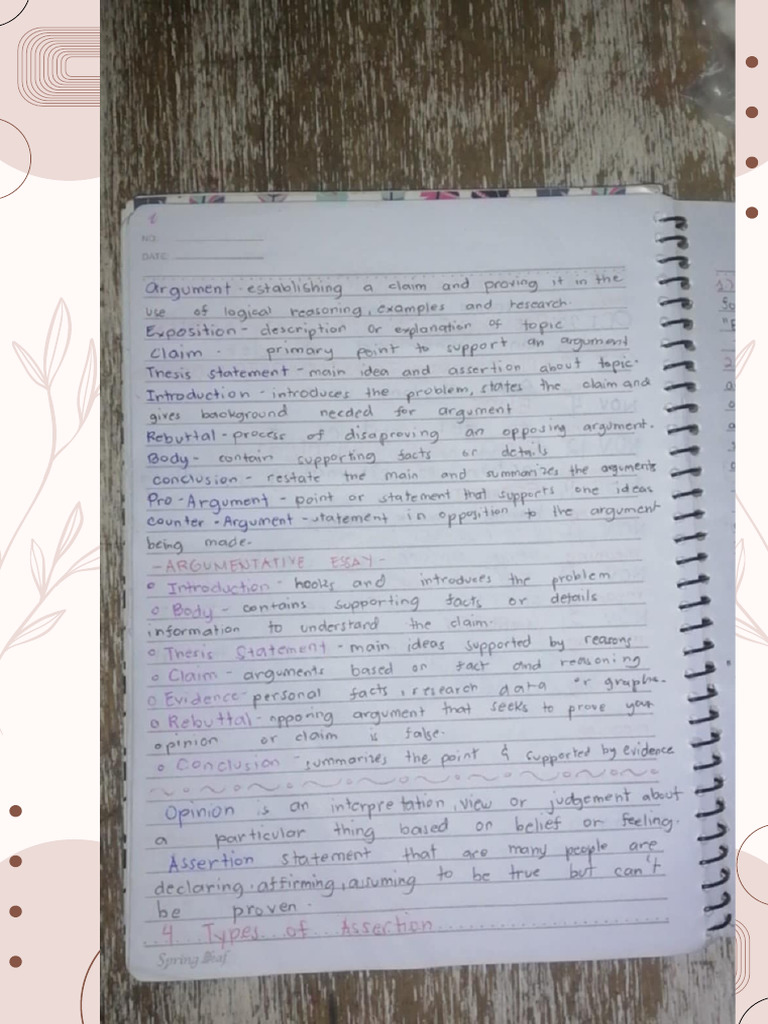 NO:
DATE:
Argument - establishing a claim and proving it in the
use of logical reasoning, examples and research.
Exposition - description or explanation of topic
Claim - primary point to support an argument
Thesis statement - main idea and assertion about topic.
Introduction - introduces the problem, states the claim and
gives background needed for argument
Rebuttal - process of disaproving an opposing argument.
Body - contain supporting facts or details
conclusion - restate the main and summarizes the arguments
Pro-Argument - point or statement that supports one ideas
counter-Argument - statement in opposition to the argument
being made.
- ARGUMENTATIVE ESSAY -
Introduction - hooks and introduces the problem
Body - contains supporting facts or details
information to understand the claim.
Thesis Statement - main ideas supported by reasons
Claim - arguments based on fact and reasoning
Evidence - personal facts, research data or graphs.
Rebuttal - opposing argument that seeks to prove your
opinion or claim is false.
Conclusion - summarizes the point & supported by evidence
Opinion is an interpretation, view or judgement about
a particular thing based on belief or feeling.
Assertion statement that are many people are
declaring, affirming, assuming to be true but can't
be proven.
4 Types of Assertion
Spring Leaf